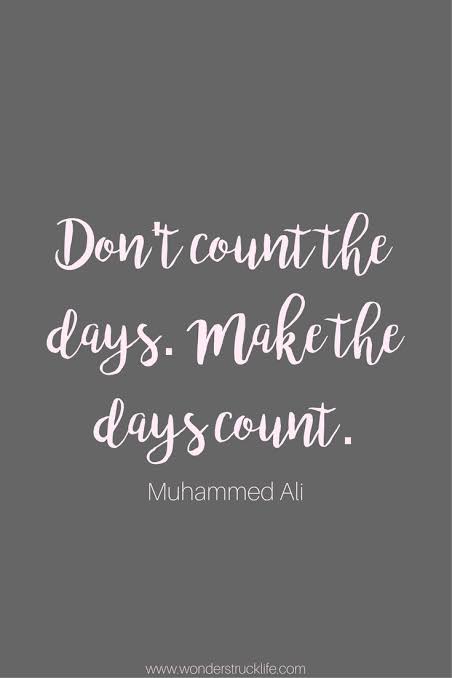 Don't count the
days. Make the
days count.
Muhammed Ali
www.wonderstrucklife.com